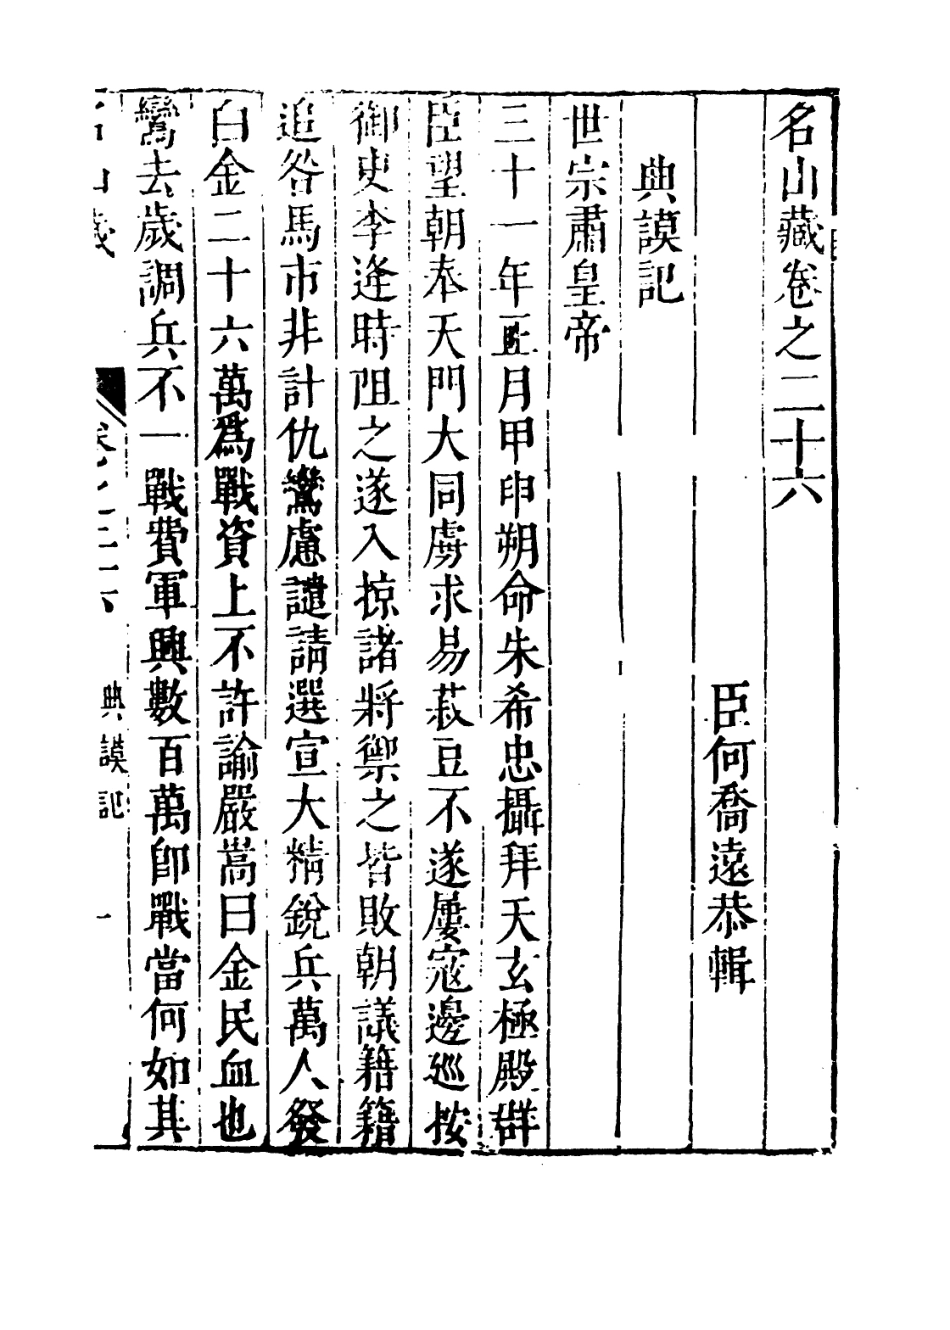 名山藏卷之二十六
臣何喬遠恭輯
典謨記
世宗肅皇帝
三十一年正月甲申朔命朱希忠攝拜天玄極殿群
臣望朝奉天門大同虜求易菽豆不遂屢寇邊巡按
御史李逢時阻之遂入掠諸將禦之皆敗朝議籍籍
追咎馬市非計仇鸞慮譴請選宣大精銳兵萬人發
白金二十六萬爲戰資上不許諭嚴嵩曰金民血也
鸞去歲調兵不一戰費軍興數百萬卽戰當何如其
名山藏 卷之二十六 典謨記 一